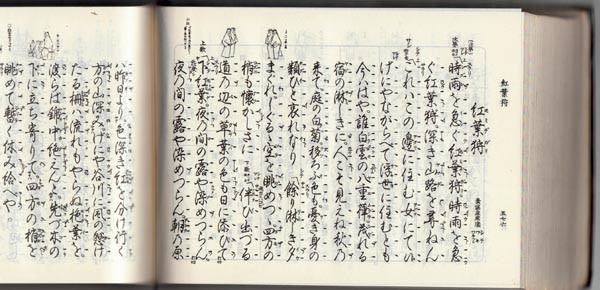 紅葉狩
五七六
紅葉狩
時雨を急ぐ紅葉狩時雨を急
ぐ紅葉狩深き山路を尋ねん
これハこの辺に住む女にて候
げにやながらへて浮世に住むとも
今ハはや誰白雲の八重葎茂れる
宿の淋しきに人こそ見えね秋の
来て庭の白菊移ろふ色も憂き身の
類ひと哀れなり余り淋しき夕
まぐれしぐるゝ空を眺めつゝ四方の
梢も懐かしさに伴ひ出づる
道の辺の草葉の色も日に添ひて
上歌
下紅葉夜の間の露や染めつらん
夜の間の露や染めつらん朝の原
ハ昨日より色深き紅を分け行く
方の山深みげにや谷川に風の懸け
たる柵ハ流れもやらぬ紅葉を
渡らば錦中絶えんとまづ木の
下に立ち寄りて四方の梢を
眺めて暫く休み給へや。